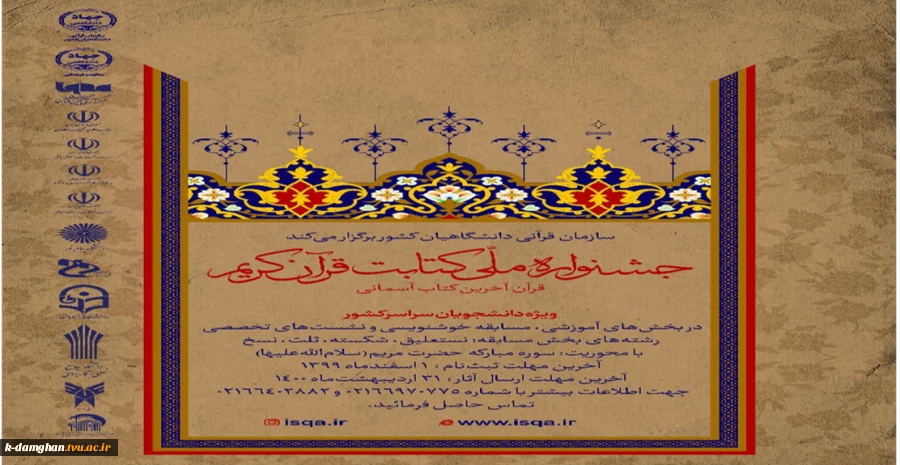 سازمان قرآنی دانشگاهیان کشور برگزار می‌کند
جشنواره ملّی کتابت قرآن کریم
قرآن آخرین کتاب آسمانی
ویژه دانشجویان سراسر کشور
در بخش های آموزشی ، مسابقه خوشنویسی و نشست های تخصصی
رشته‌های بخش مسابقه: نستعلیق ، شکسته ، ثلث ، نسخ
با محوریت: سوره مبارکه حضرت مریم (سلام الله علیها)
آخرین مهلت ثبت نام : ۱ اسفندماه ۱۳۹۹
آخرین مهلت ارسال آثار: ۳۱ اردیبهشت ماه ۱۴۰۰
جهت اطلاعات بیشتر با شماره ۰۲۱۶۶۹۷۰۷۷۵ و ۰۲۱۶۶۴۰۲۸۸۲
تماس حاصل فرمائید.
isqa.ir www.isqa.ir
جهاد
دانشگاهی
جهاد
دانشگاهی
k-damghan.tvu.ac.ir